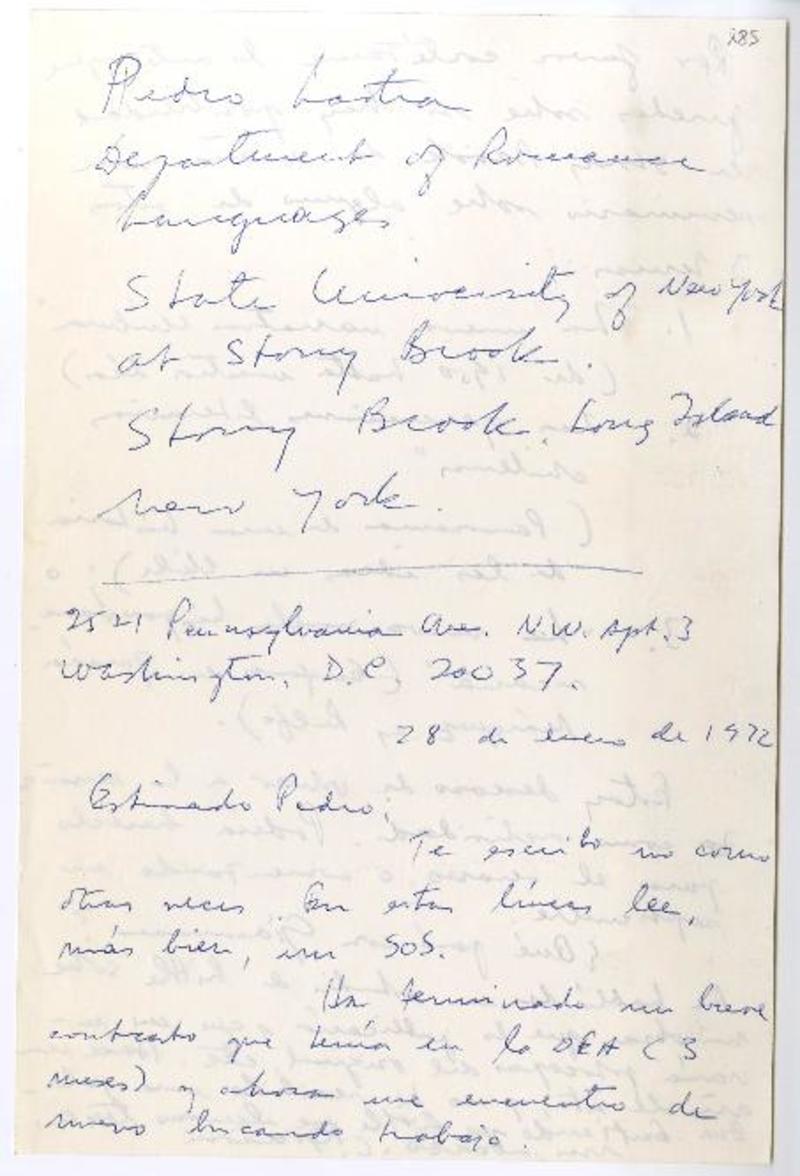 285
Pedro Lastra
Department of Romance
Languages
State University of New York
at Stony Brook.
Stony Brook. Long Island
New York.
2521 Pennsylvania Ave. N.W. Apt. 3
Washington, D.C. 20037.
28 de enero de 1972
Estimado Pedro:
Te escribo no como
otras veces. En estas líneas lee,
más bien, un SOS.
Ha terminado un breve
contrato que tenía en la OEA (3
meses) y ahora me encuentro de
nuevo buscando trabajo.